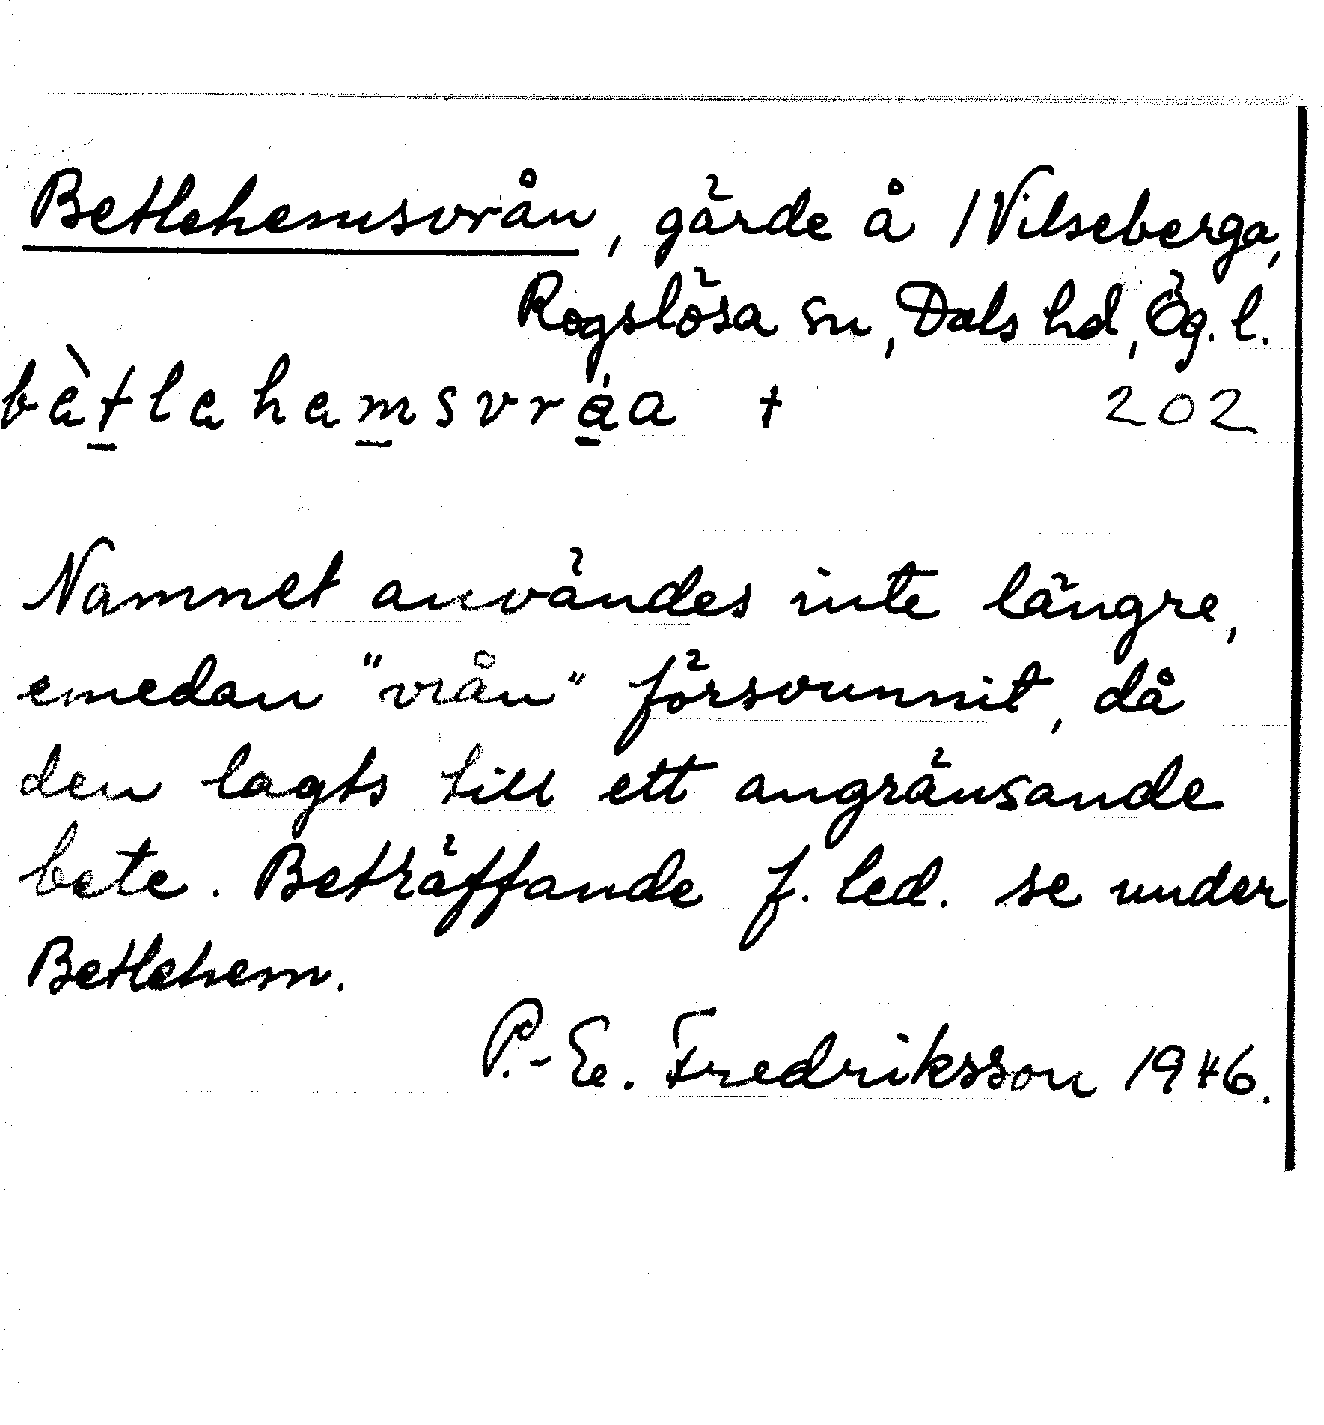 Betlehemsvrån, gärde å Nilseberga,
Rogslösa sn, Dals hd, Ög. l.
202
Namnet användes inte längre,
emedan "vrån" försvunnit, då
den lagts till ett angränsande
bete. Beträffande f. led. se under
Betlehem.
P.-E. Fredriksson 1946.